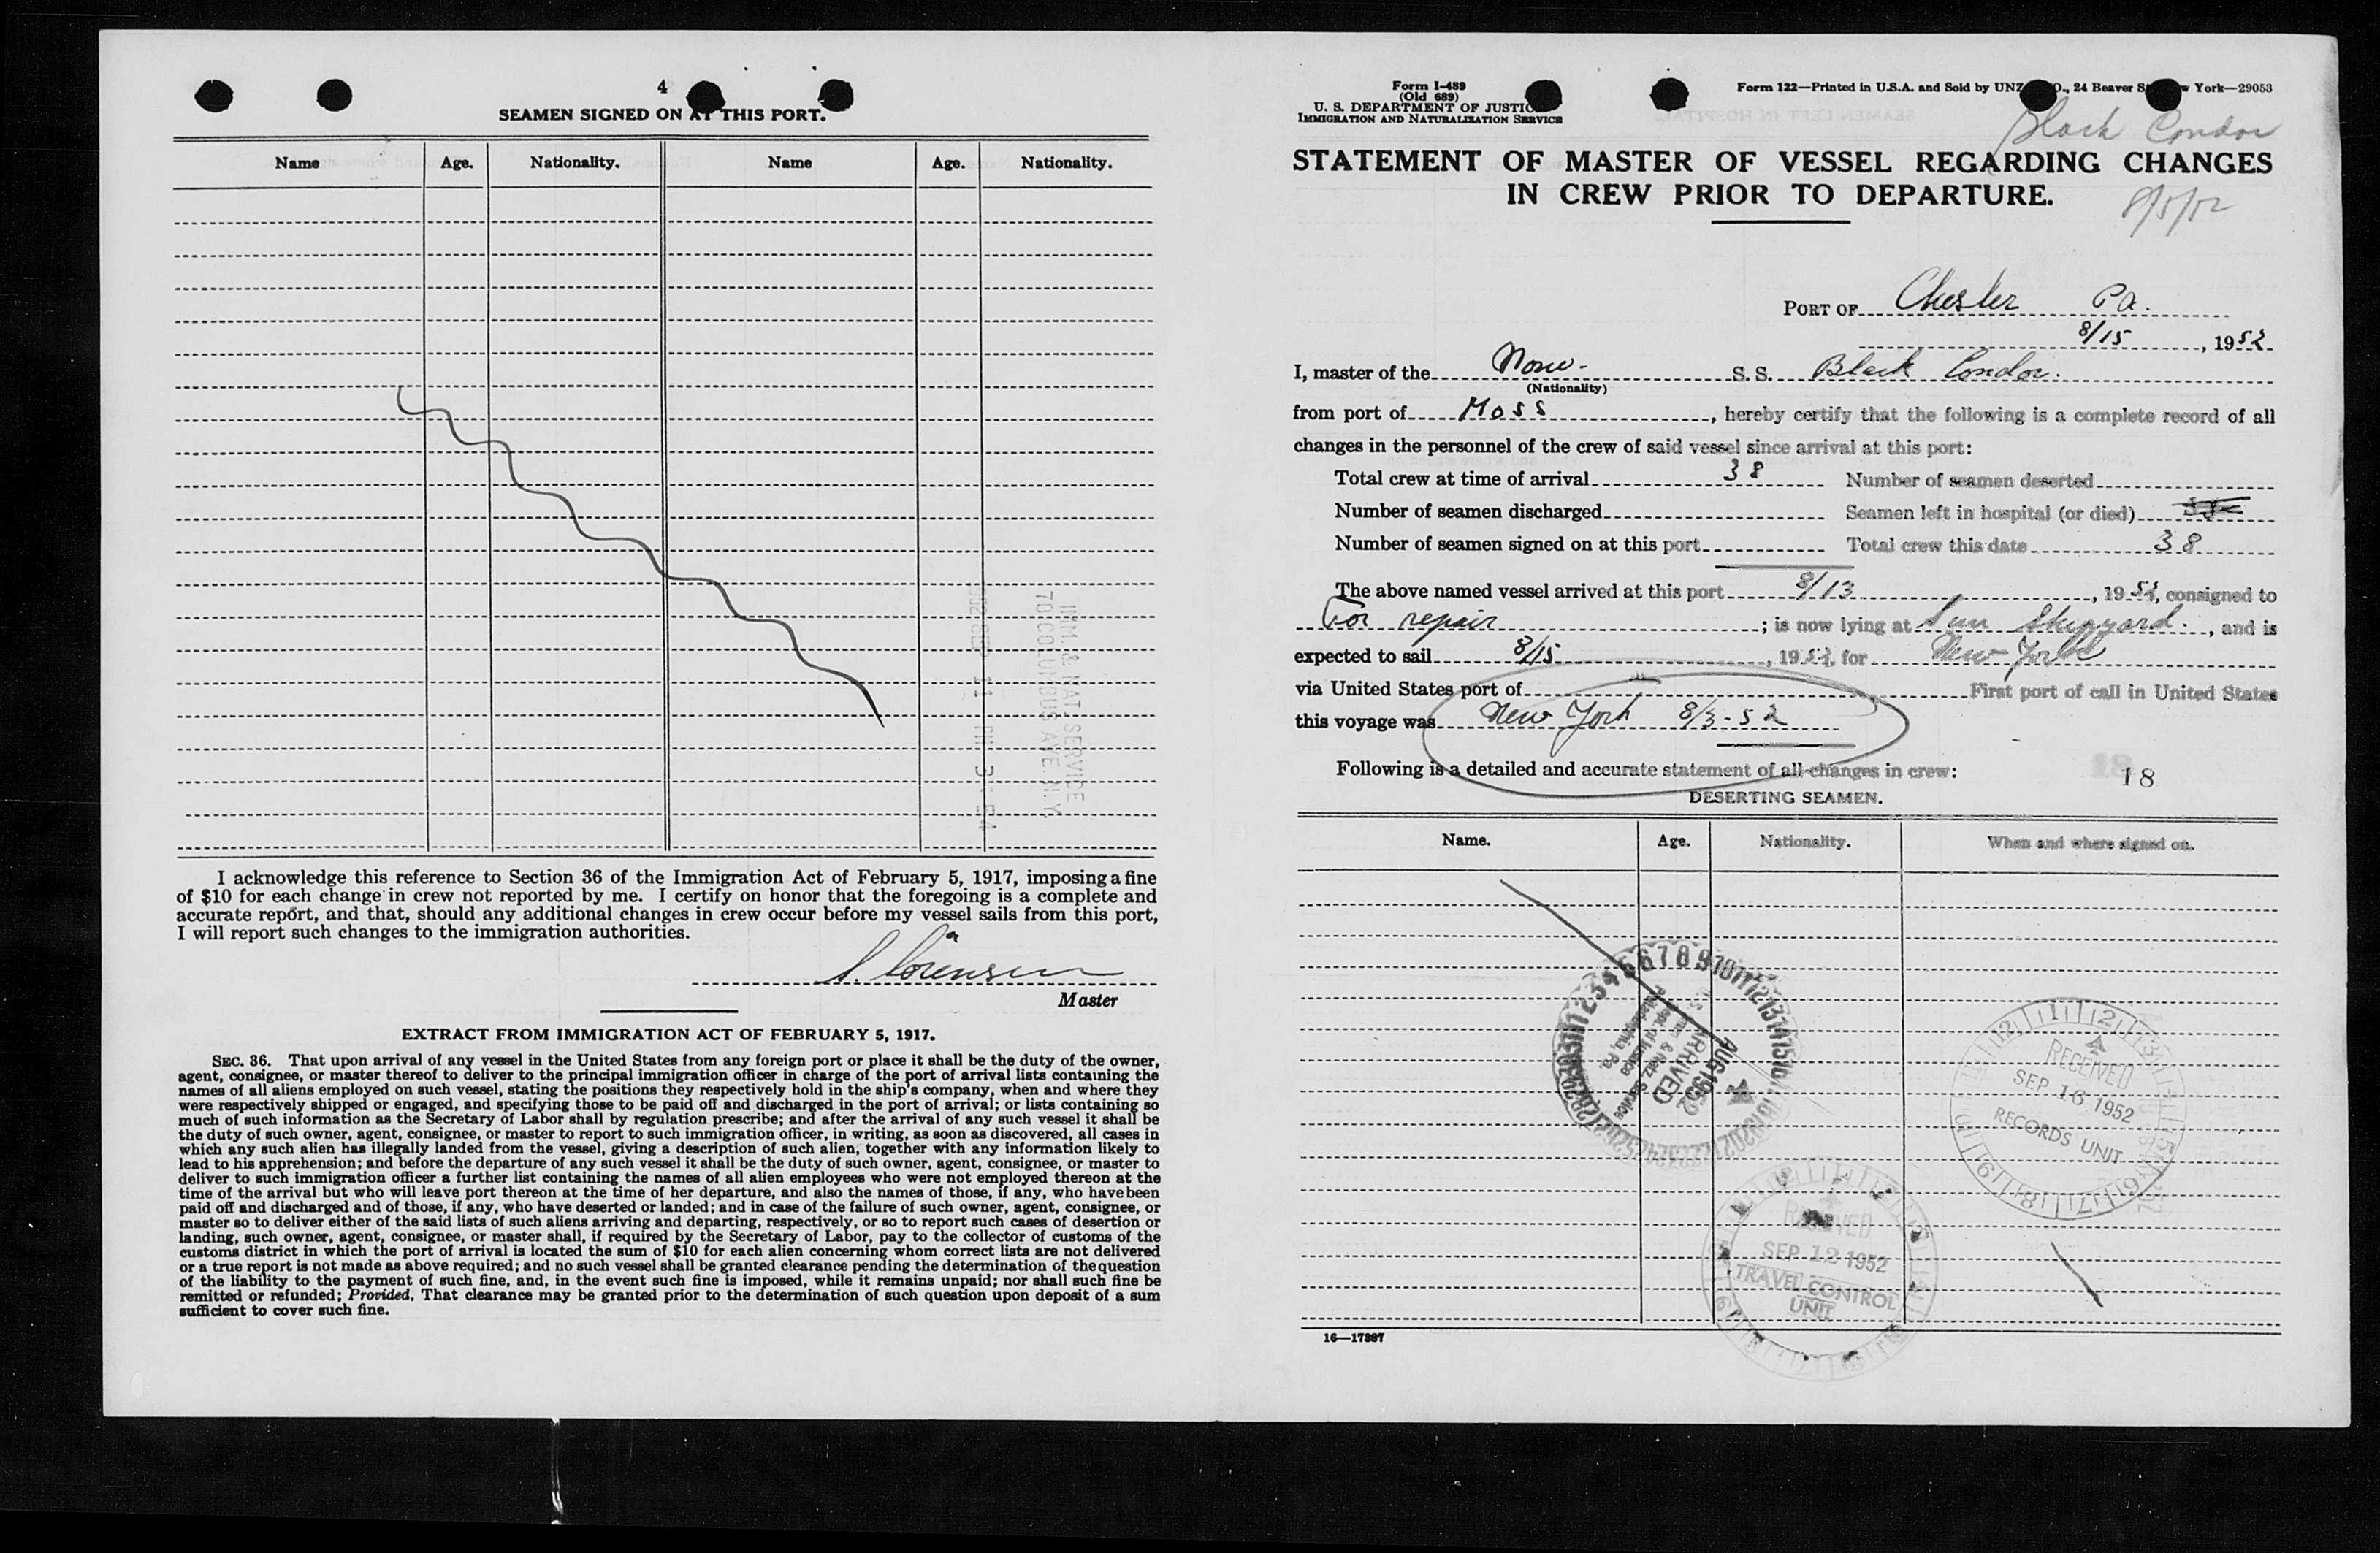 4
SEAMEN SIGNED ON AT THIS PORT.
Name Age. Nationality. Name Age. Nationality.
IMM. & NAT. SERVICE
70 COLUMBUS AVE. N.Y.
1952 SEP 11 PM 3 54
I acknowledge this reference to Section 36 of the Immigration Act of February 5, 1917, imposing a fine
of $10 for each change in crew not reported by me. I certify on honor that the foregoing is a complete and
accurate report, and that, should any additional changes in crew occur before my vessel sails from this port,
I will report such changes to the immigration authorities.
S. Sörensen
Master
EXTRACT FROM IMMIGRATION ACT OF FEBRUARY 5, 1917.
SEC. 36. That upon arrival of any vessel in the United States from any foreign port or place it shall be the duty of the owner,
agent, consignee, or master thereof to deliver to the principal immigration officer in charge of the port of arrival lists containing the
names of all aliens employed on such vessel, stating the positions they respectively hold in the ship's company, when and where they
were respectively shipped or engaged, and specifying those to be paid off and discharged in the port of arrival; or lists containing so
much of such information as the Secretary of Labor shall by regulation prescribe; and after the arrival of any such vessel it shall be
the duty of such owner, agent, consignee, or master to report to such immigration officer, in writing, as soon as discovered, all cases in
which any such alien has illegally landed from the vessel, giving a description of such alien, together with any information likely to
lead to his apprehension; and before the departure of any such vessel it shall be the duty of such owner, agent, consignee, or master to
deliver to such immigration officer a further list containing the names of all alien employees who were not employed thereon at the
time of the arrival but who will leave port thereon at the time of her departure, and also the names of those, if any, who have been
paid off and discharged and of those, if any, who have deserted or landed; and in case of the failure of such owner, agent, consignee, or
master so to deliver either of the said lists of such aliens arriving and departing, respectively, or so to report such cases of desertion or
landing, such owner, agent, consignee, or master shall, if required by the Secretary of Labor, pay to the collector of customs of the
customs district in which the port of arrival is located the sum of $10 for each alien concerning whom correct lists are not delivered
or a true report is not made as above required; and no such vessel shall be granted clearance pending the determination of the question
of the liability to the payment of such fine, and, in the event such fine is imposed, while it remains unpaid; nor shall such fine be
remitted or refunded; Provided, That clearance may be granted prior to the determination of such question upon deposit of a sum
sufficient to cover such fine.
Form I-489
(Old 689)
U. S. DEPARTMENT OF JUSTICE
IMMIGRATION AND NATURALIZATION SERVICE
Form 122—Printed in U.S.A. and Sold by UNZ O., 24 Beaver S w York—29053
Black Condor
STATEMENT OF MASTER OF VESSEL REGARDING CHANGES
IN CREW PRIOR TO DEPARTURE.
8/5/52
PORT OF Chester Pa.
8/15, 1952
I, master of the Norw. S. S. Black Condor.
(Nationality)
from port of Moss, hereby certify that the following is a complete record of all
changes in the personnel of the crew of said vessel since arrival at this port:
Total crew at time of arrival 38 Number of seamen deserted
Number of seamen discharged Seamen left in hospital (or died)
Number of seamen signed on at this port Total crew this date 38
The above named vessel arrived at this port 8/13, 1952, consigned to
For repair; is now lying at Sun Shipyard., and is
expected to sail 8/15, 1952, for New York
via United States port of First port of call in United States
this voyage was New York 8/3-52
Following is a detailed and accurate statement of all changes in crew:
18
DESERTING SEAMEN.
Name. Age. Nationality. When and where signed on.
ARRIVED
AUG 1952
U.S. Imm. & Natz. Service
Dept. of Justice
Philadelphia, Pa.
RECEIVED
SEP 16 1952
RECORDS UNIT
RECEIVED
SEP 12 1952
TRAVEL CONTROL
UNIT
16—17387